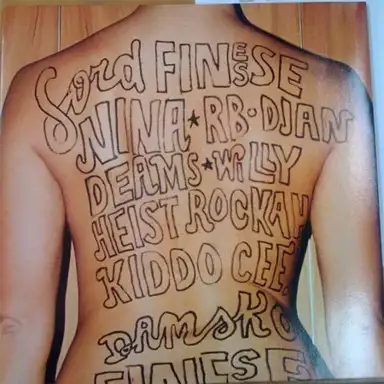 Lord FINESSE
NINA★RB·DJAN
DEAMS★WiLLY
HEIST ROCKAH
KIDDO CEE
DAMSKO
FINESSE